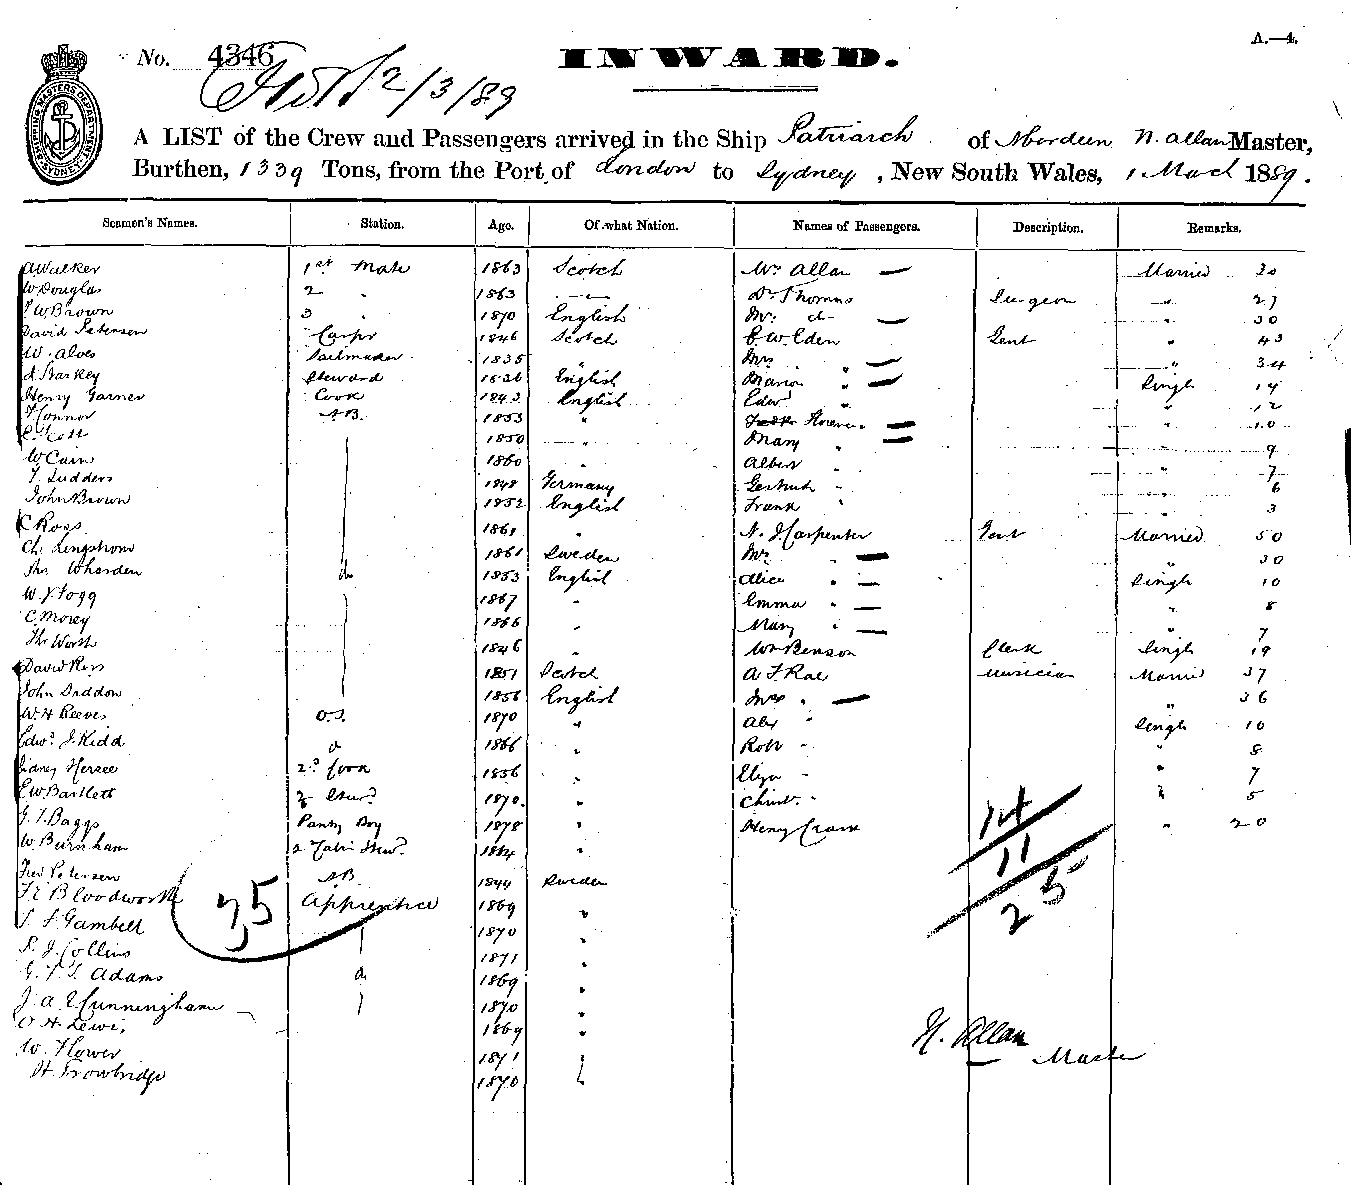 No. 4346
INWARD.
A.—4.
2/3/89
SHIPPING MASTERS DEPARTMENT SYDNEY
A LIST of the Crew and Passengers arrived in the Ship Patriarch of Aberdeen N. Allan Master,
Burthen, 1339 Tons, from the Port of London to Sydney, New South Wales, 1 March 1889.
Seamen's Names. Station. Age. Of what Nation. Names of Passengers. Description. Remarks.
A Walker 1st Mate 1863 Scotch Mrs Allan — Married 30
W Douglas 2 " 1863 —"— Dr Thomas Surgeon " 27
W Brown 3 " 1870 English Mrs do — " 30
David Petersen Carpr 1846 Scotch E W Eden Gent " 43
W. Alves Sailmaker 1835 Mrs " — " 34
Starkey Steward 1836 English Marion " — Single 14
Henry Garner Cook 1843 English Edwd " " 12
T Connor AB. 1853 " Florence — " 10
1850 " Mary " — " 9
W Cairn 1860 " Albert " " 7
T. Ludders 1848 Germany Gertrude " " 6
John Brown 1852 English Frank " " 3
C Ross 1861 " N. J. Carpenter Gent Married 50
Ch. Lengstrom 1861 Sweden Mrs " — " 30
Thos Wharden do 1853 English Alice " — Single 10
W. J. Fogg 1867 " Emma " — " 8
C. Morey 1866 " Mary " — " 7
Thos Worth 1846 " Wm Benson Clerk Single 19
David Ross 1851 Scotch A F Rae Musician Married 37
John Daddon 1856 English Mrs " — " 36
W. H Reeves O.S. 1870 " Alex " Single 10
Edwd J. Kidd " 1866 " Robt " " 8
Sidney Hersee 2nd Cook 1856 " Eliza " " 7
E W Bartlett 2 Stewd 1870. " Christr " " 5
G. T. Baggs Pantry Boy 1878 " Henry Crane " 20
W. Burnham 2 Cabin Stewd 1864 "
Fred Petersen AB 1844 Sweden
F E Bloodworth Apprentice 1869 "
S. F. Gambell 1870 "
R. J. Collins 1871 "
G. F. S. Adams do 1869 "
J. A. E Cunningham 1870 "
O. H. Lewis 1869 "
W. Flower 1871
H. Trowbridge 1870
35
14
11
25
N. Allan
Master